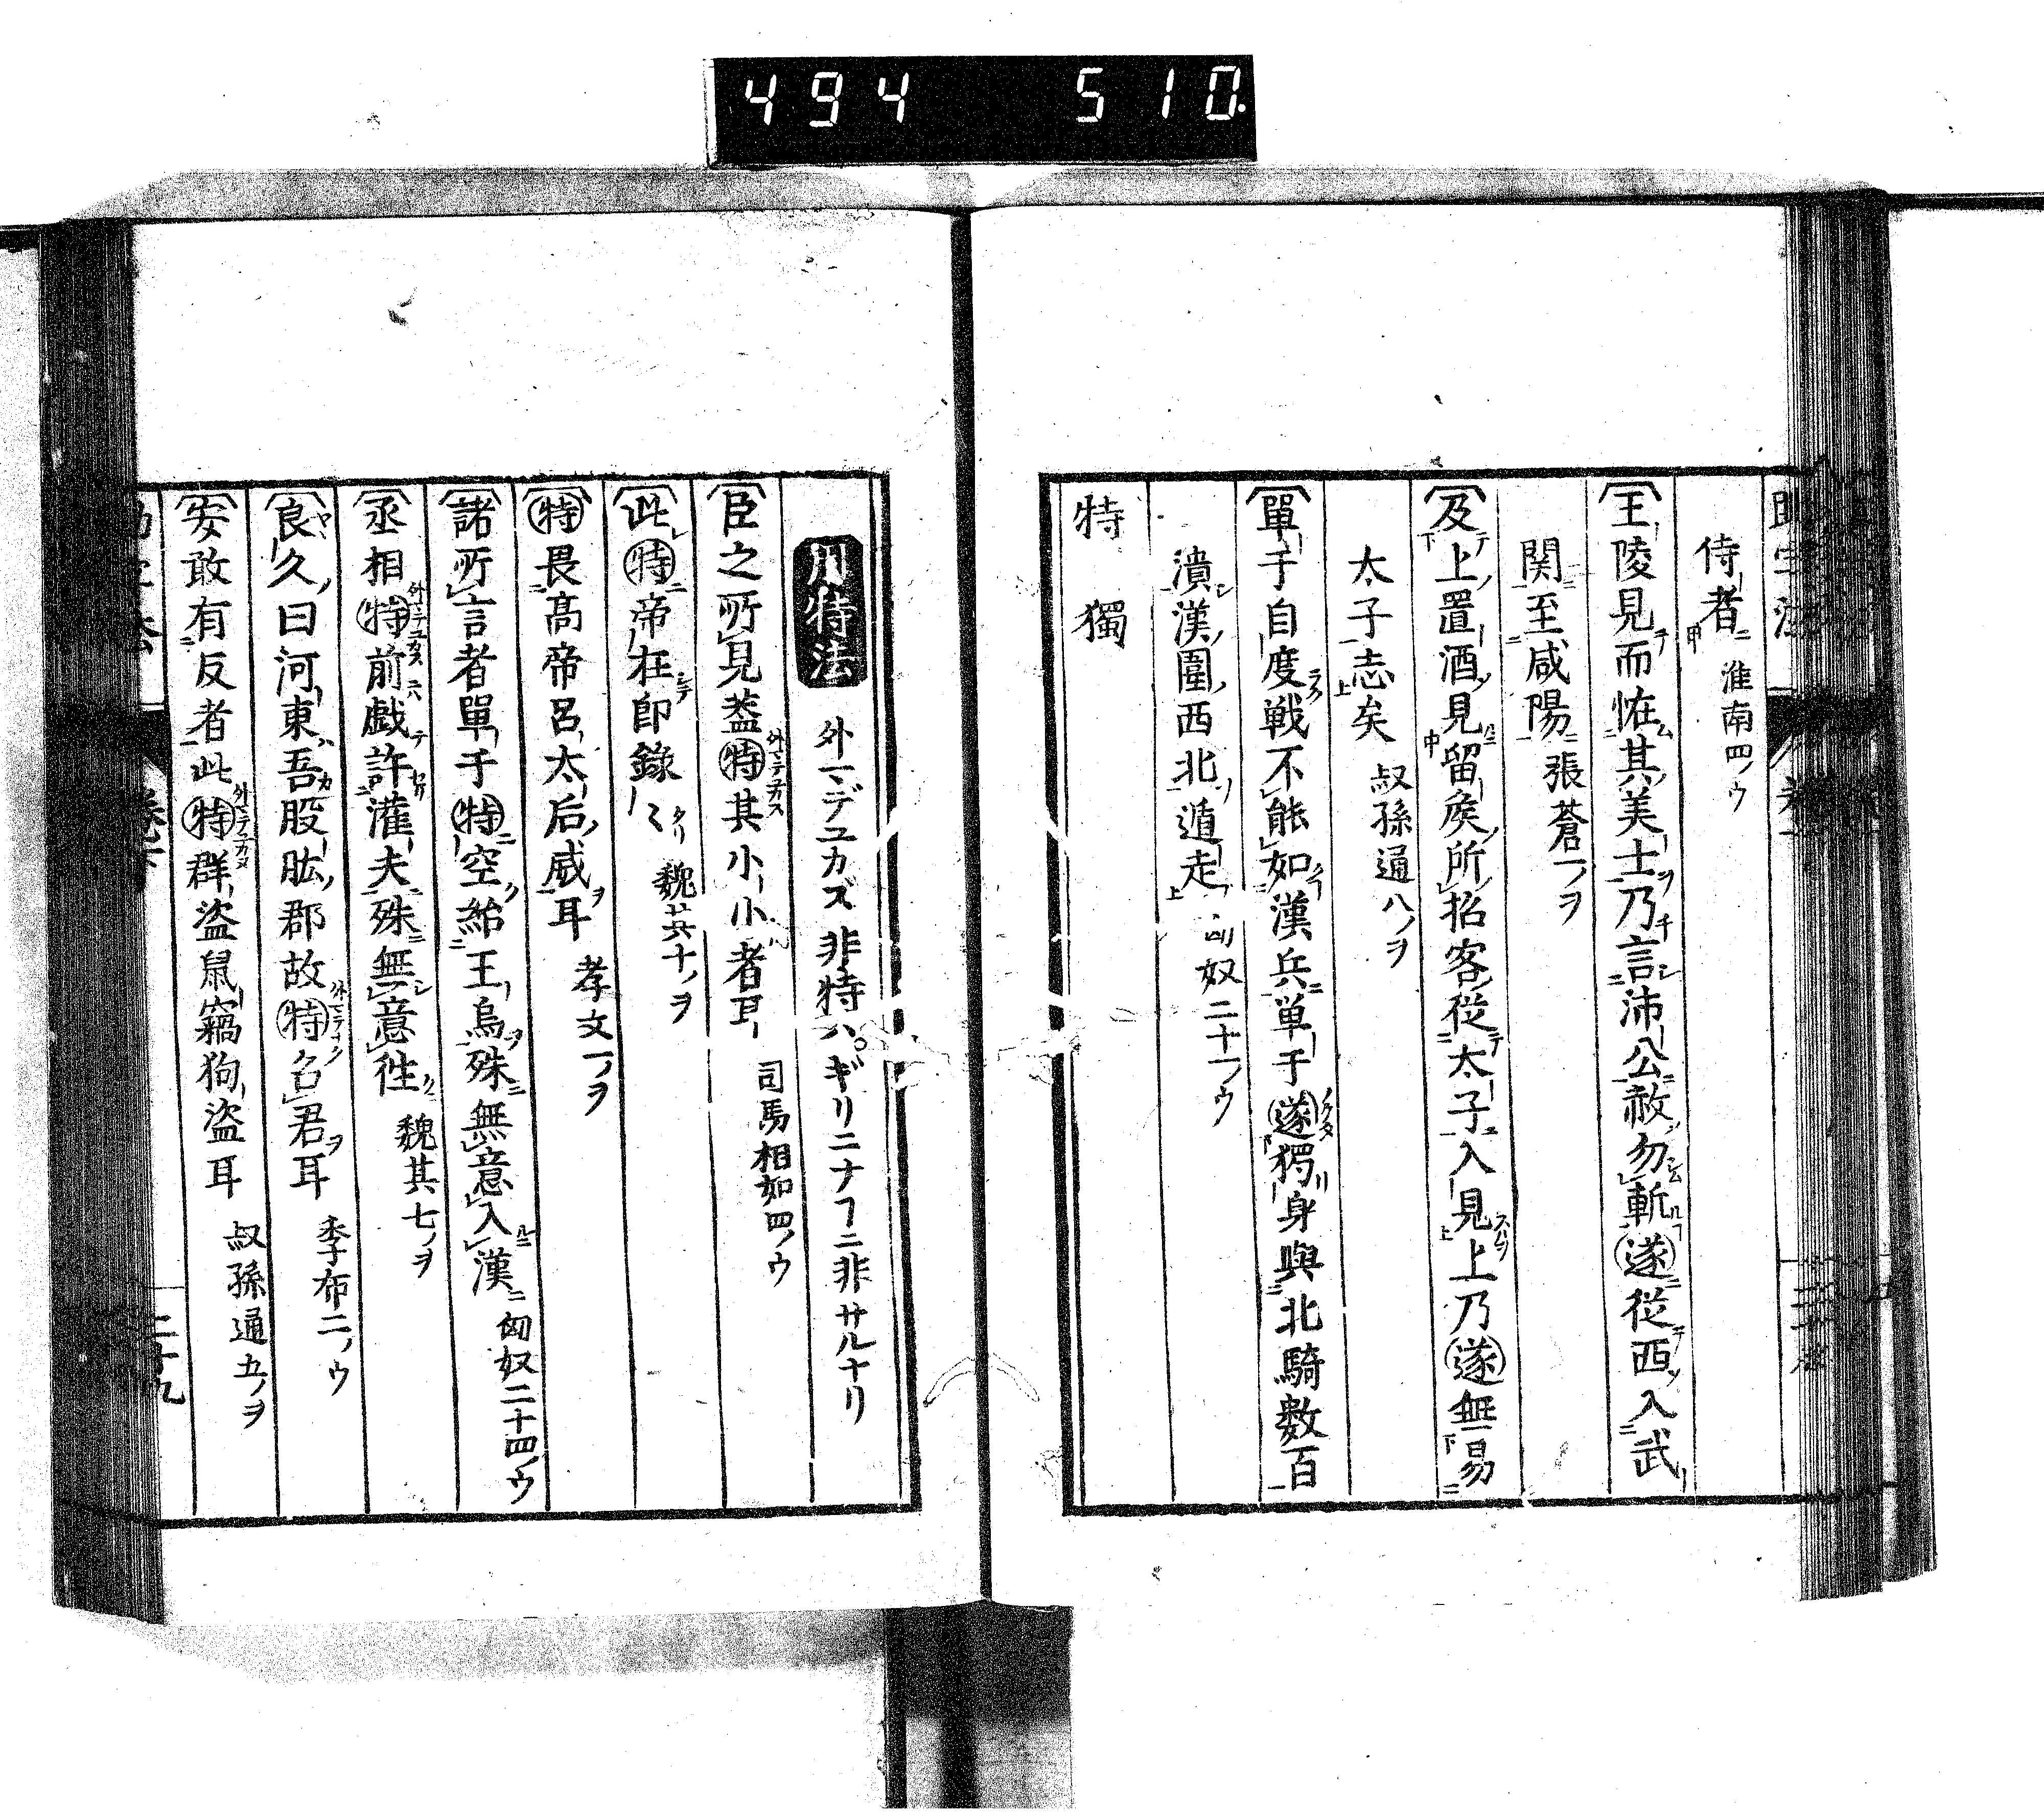 494 510
侍者 淮南四ノウ
王陵見而恠其美士乃言沛公赦勿斬遂從西入武
関至咸陽 張蒼一ノヲ
及上置酒見留矦所招客從太子入見上乃遂無易
太子志矣 叔孫通八ノヲ
單于自度戦不能如漢兵単于遂獨身與北騎數百
潰漢圍西北遁走 匈奴二十一ノウ
特 獨
用特法 外マデユカズ 非特ハギリニナフニ非サルナリ
臣之所見葢特其小小者耳 司馬相如四ノウ
此特帝在即錄〻 魏其十ノヲ
特畏高帝呂太后威耳 孝文一ノヲ
諸所言者單于特空紿王烏殊無意入漢 匈奴二十四ノウ
丞相特前戯許灌夫殊無意徃 魏其七ノヲ
良久曰河東吾股肱郡故特召君耳 季布二ノウ
安敢有反者此特群盗鼠竊狗盗耳 叔孫通五ノヲ
二十九